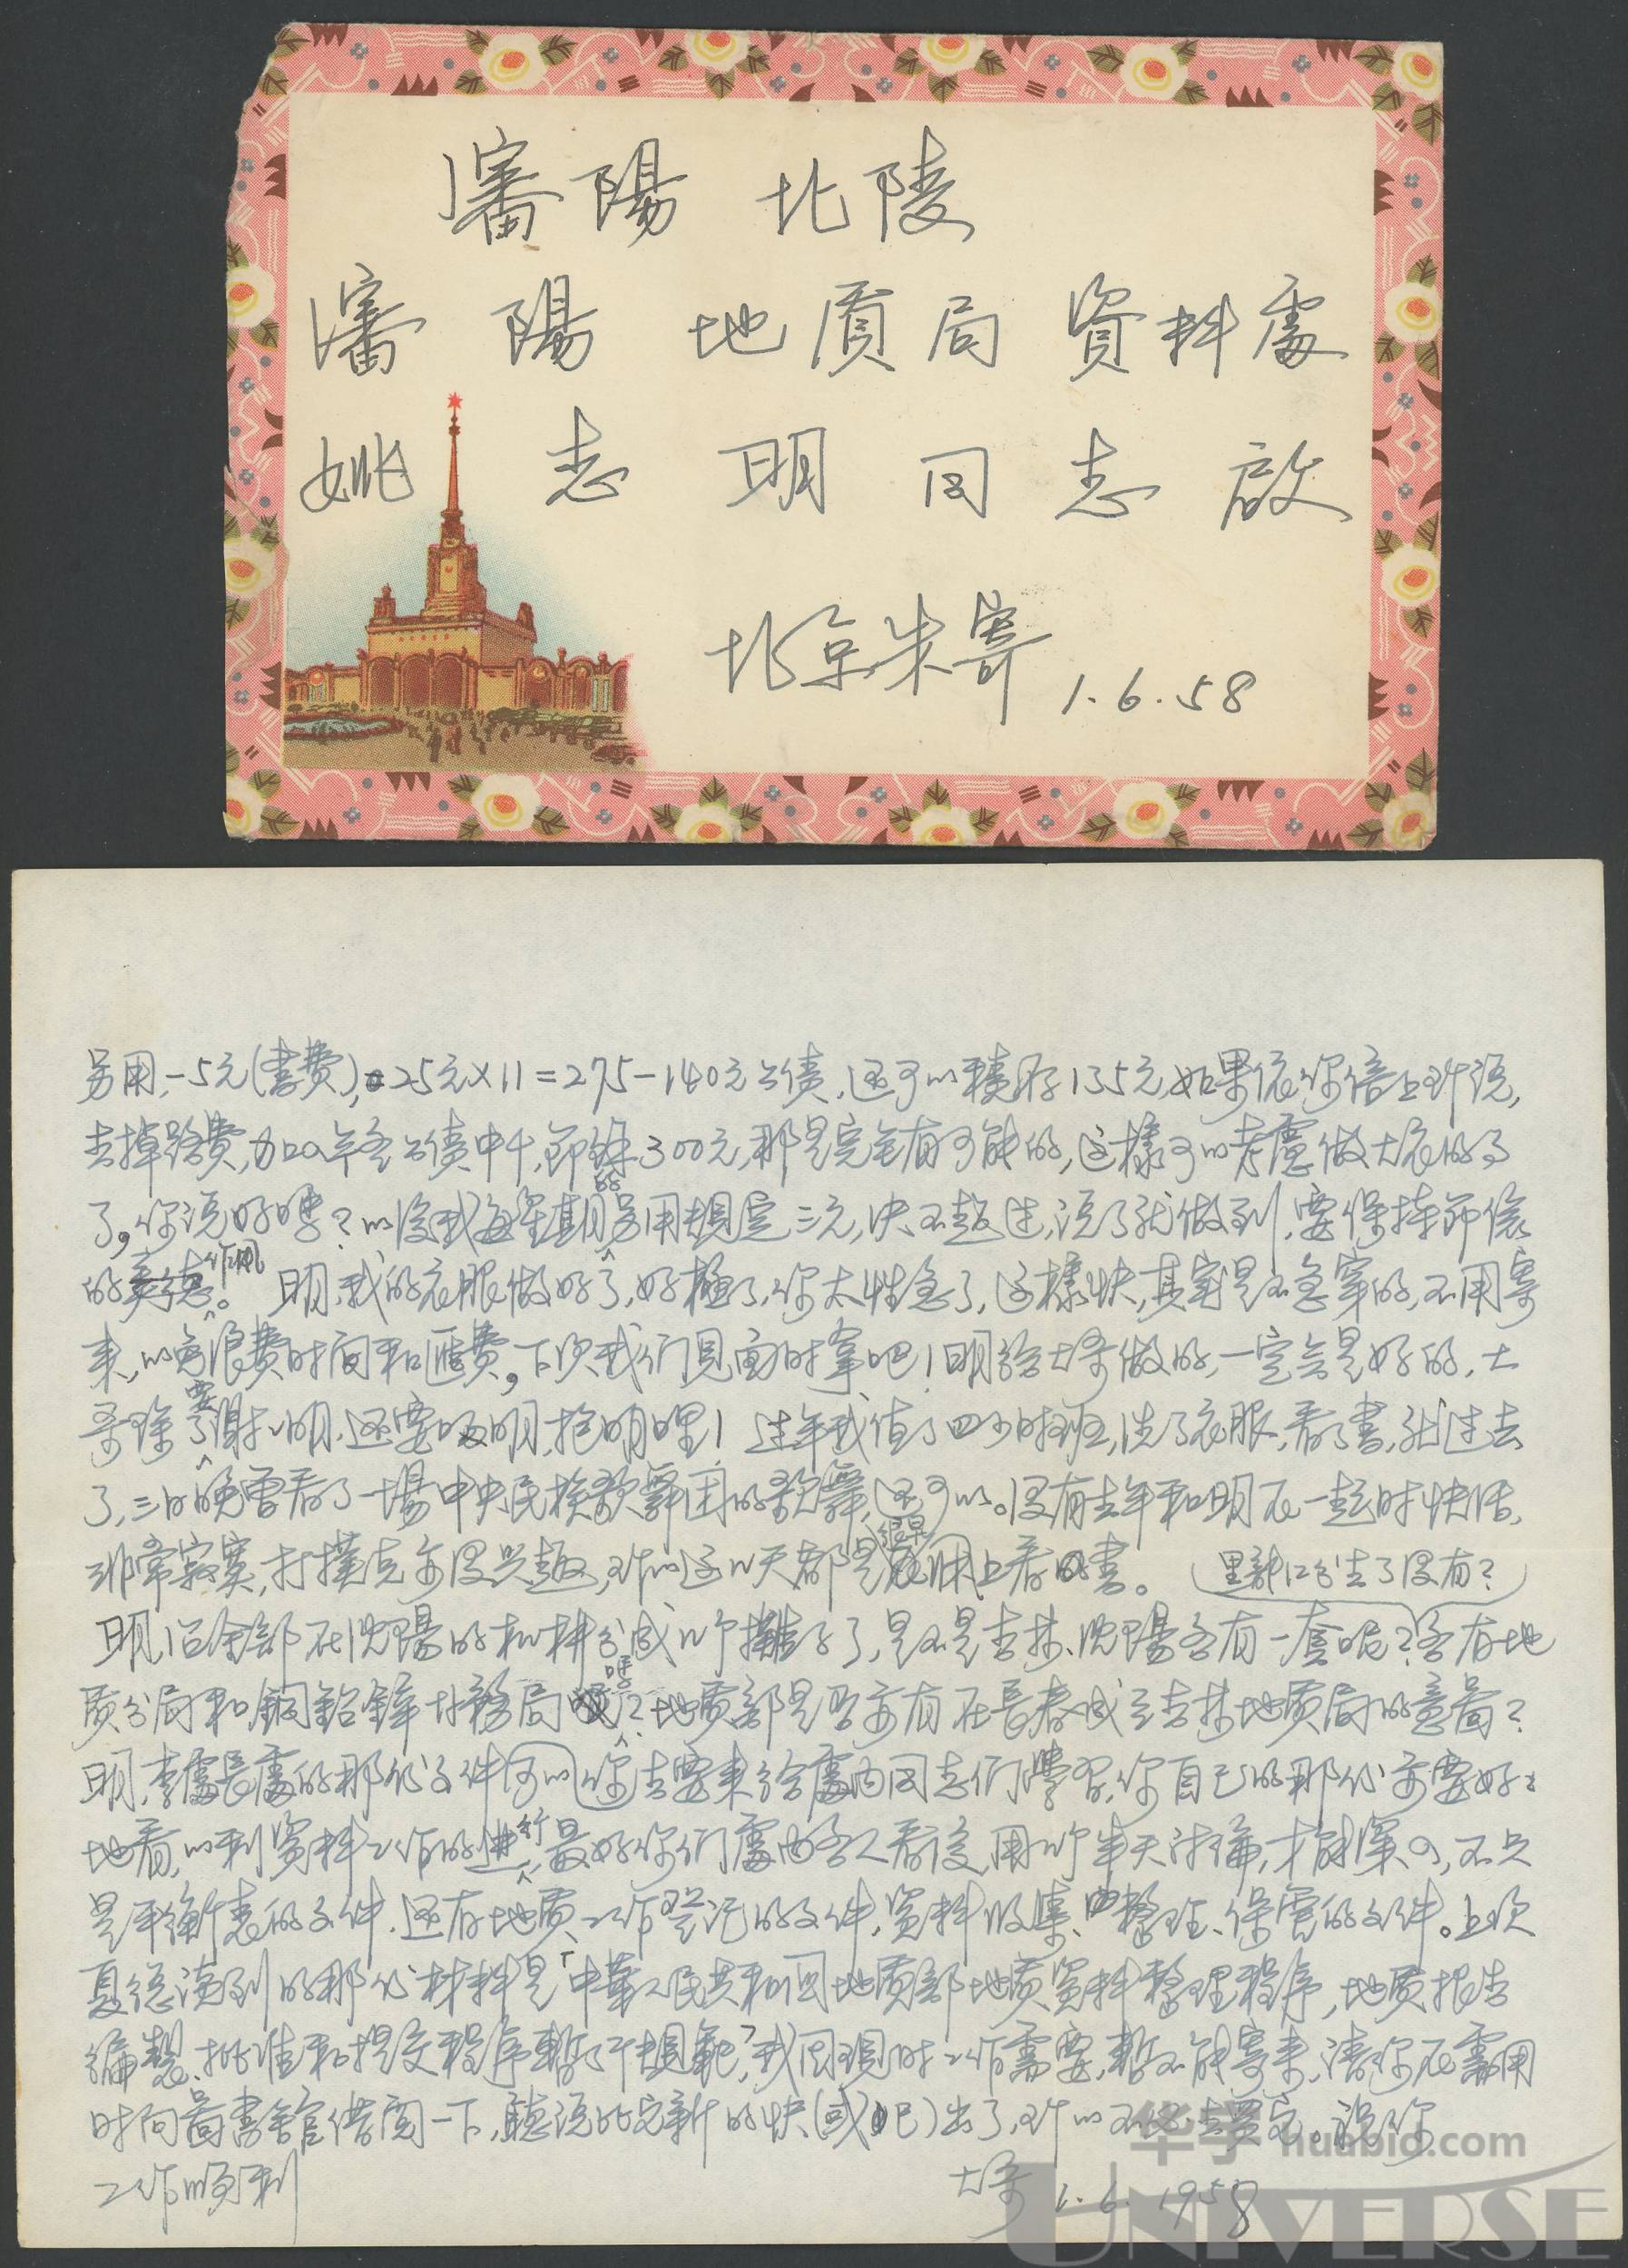 瀋陽 北陵
瀋陽地质局資料處
姚志明同志啟
北京朱寄 1.6.58
另用,-5元(書費),25元×11=275-140元公債,还可以積存135元,如果依你信上所说,
去掉路費,加公債中 300元,那是完全有可能的,这樣可以考慮做大衣的了
了,你说好嗎?以後我每星期的另用規定三元,决不超过,说了就做到,要保持節儉
的作風。 明,我的衣服做好了,好極了,你太性急了,这樣快,其实是不急穿的,不用寄
来,以免浪費时间和匯費,下次我们見面时拿吧!明给大哥做的,一定会是好的,大
哥除了要謝謝明,还要吻明,抱明哩!过年我值了四小时班,洗了衣服,看了書,就过去
了,三日晚雪看了一場中央民族歌舞团的歌舞,还可以。没有去年和明在一起时快活,
非常寂寞,打撲克亦没兴趣,所以这几天都是很早在床上看書。 (黑龍江分去了没有?)
明,冶金部在沈陽的机構分成几个攤子了,是不是吉林、沈陽各有一套呢?各有地
质分局和銅鉛鋅 局呢?地质部是否亦有在長春成立吉林地质局的意圖?
明,李處長處的那份文件可以你去要来给處内同志们學習,你自己的那份亦要好好
地看,以利資料工作的进行,最好你们處内各人看後,用几个半天討論,才能深入,不只
是平衡表的文件,还有地质工作登记的文件,資料收集、整理、保管的文件。上次
夏德 到的那份材料是「中華人民共和国地质部地质資料整理程序,地质报告
編製、批准和提交程序暫行規範」,我因現时工作需要,暫不能寄来,请你在需用
时向圖書館借閱一下,聽说比它新的快(或已)出了,所以不必去買它。祝你
工作順利 大哥 1.6.1958
华宇 huabid.com
UNIVERSE